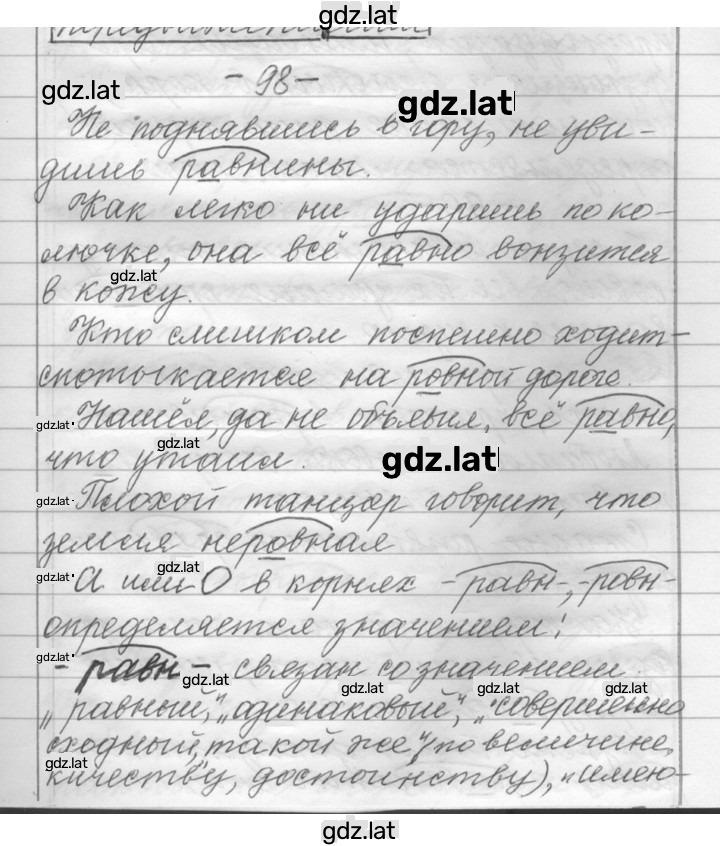 gdz.lat
- 98 -
gdz.lat
gdz.lat
Не поднявшись в гору, не уви-
дишь равнины.
Как легко ни ударишь по ко-
лючке, она всё равно вонзится
gdz.lat
в кожу.
Кто слишком поспешно ходит -
спотыкается на ровной дороге.
gdz.lat
Нашёл, да не объявил, всё равно,
gdz.lat
что утаил.
gdz.lat
gdz.lat
Плохой танцор говорит, что
земля неровная
gdz.lat
gdz.lat
А или О в корнях -равн-, -ровн-
определяется значением:
gdz.lat
- равн - связан со значением
gdz.lat
gdz.lat
gdz.lat
gdz.lat
„равный", „одинаковый", „совершенно
сходный, такой же" (по величине,
gdz.lat
качеству, достоинству), „имею-
gdz.lat